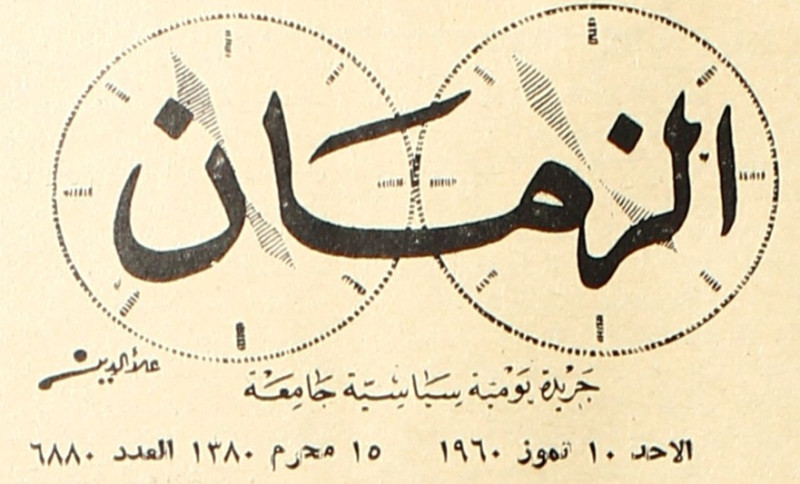 الزمان
علاءالدين
جَرِيْدَة يَوْمِيّة سِيَاسِيّة جَامِعَة
الاحد ١٠ تموز ١٩٦٠ ١٥ محرم ١٣٨٠ العدد ٦٨٨٠